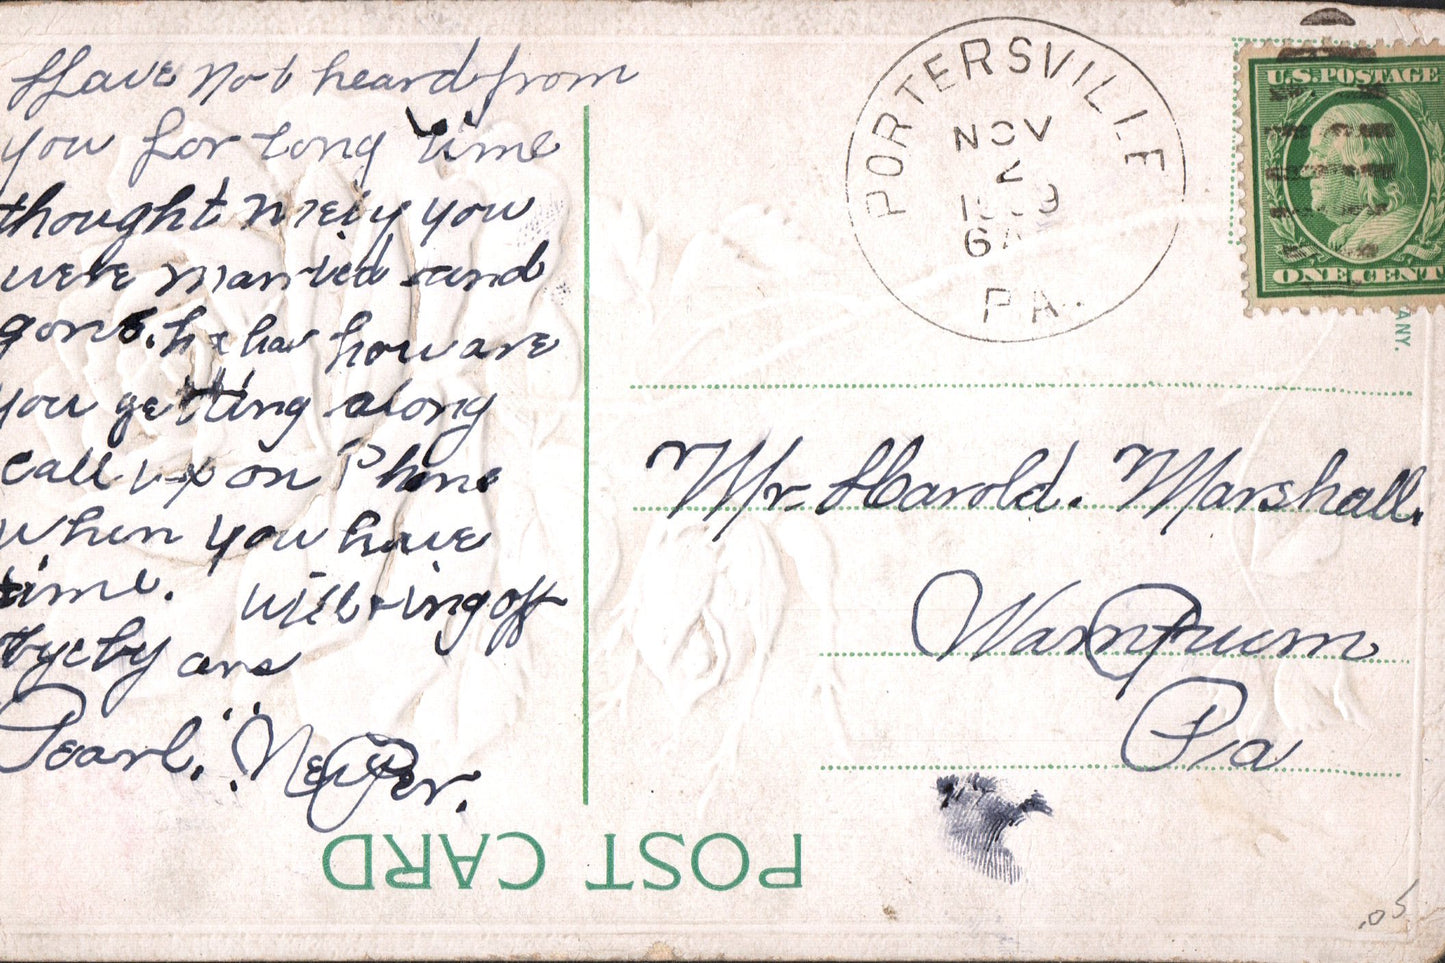 Have not heard from
you for long time
thought mely you
were married and
gone. ha ha how are
you getting along
call up on Phone
when you have
time. will ring off
bye by ans
Pearl. Neyper.
PORTERSVILLE
NOV
2
1909
6A
PA.
U.S. POSTAGE
ONE CENT
ANY.
Mr. Harold. Marshall.
Wampum
Pa
POST CARD
.05